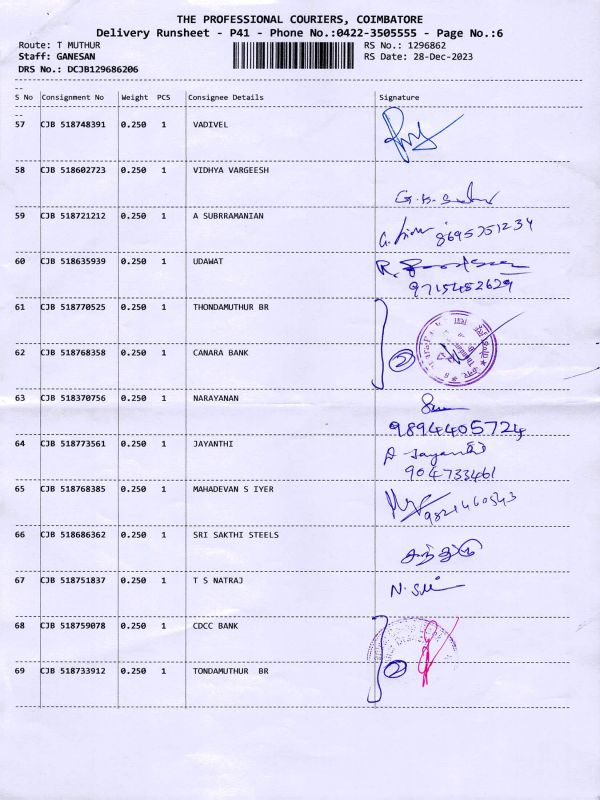 THE PROFESSIONAL COURIERS, COIMBATORE
Delivery Runsheet - P41 - Phone No.:0422-3505555 - Page No.:6
Route: T MUTHUR
RS No.: 1296862
Staff: GANESAN
RS Date: 28-Dec-2023
DRS No.: DCJB129686206
S No Consignment No Weight PCS Consignee Details Signature
57 CJB 518748391 0.250 1 VADIVEL
58 CJB 518602723 0.250 1 VIDHYA VARGEESH
59 CJB 518721212 0.250 1 A SUBRRAMANIAN
8695351234
60 CJB 518635939 0.250 1 UDAWAT
9715452629
61 CJB 518770525 0.250 1 THONDAMUTHUR BR
62 CJB 518768358 0.250 1 CANARA BANK
2
63 CJB 518370756 0.250 1 NARAYANAN
9894405724
64 CJB 518773561 0.250 1 JAYANTHI
A Jayanthi
904733461
65 CJB 518768385 0.250 1 MAHADEVAN S IYER
9821460343
66 CJB 518686362 0.250 1 SRI SAKTHI STEELS
67 CJB 518751837 0.250 1 T S NATRAJ
68 CJB 518759078 0.250 1 CDCC BANK
69 CJB 518733912 0.250 1 TONDAMUTHUR BR
2